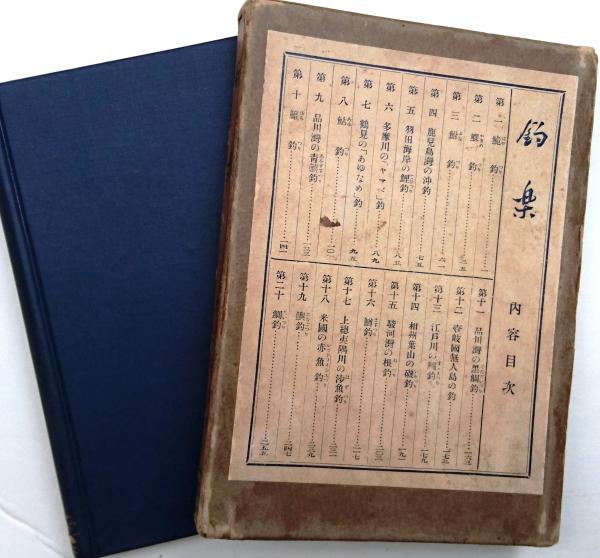 釣楽
内容目次
第一 鮠釣……一
第二 鱚釣……三五
第三 鮒釣……六一
第四 鹿兒島灣の沖釣……七五
第五 羽田海岸の鯉釣……八五
第六 多摩川の「ヤマベ」釣……八九
第七 鶴見の「あゆなめ」釣……九五
第八 鮎釣……一〇一
第九 品川灣の青釣……一三三
第十 釣……一四一
第十一 品川灣の黒鯛釣……一六三
第十二 壹岐國無人島の釣……一七三
第十三 江戸川の釣……一七九
第十四 相州葉山の磯釣……一九一
第十五 駿河灣の根釣……二〇三
第十六 釣……二一七
第十七 上總夷隅川の沙魚釣……二三一
第十八 米國の赤魚釣……二三九
第十九 釣……二四七
第二十 鯛釣……二五五